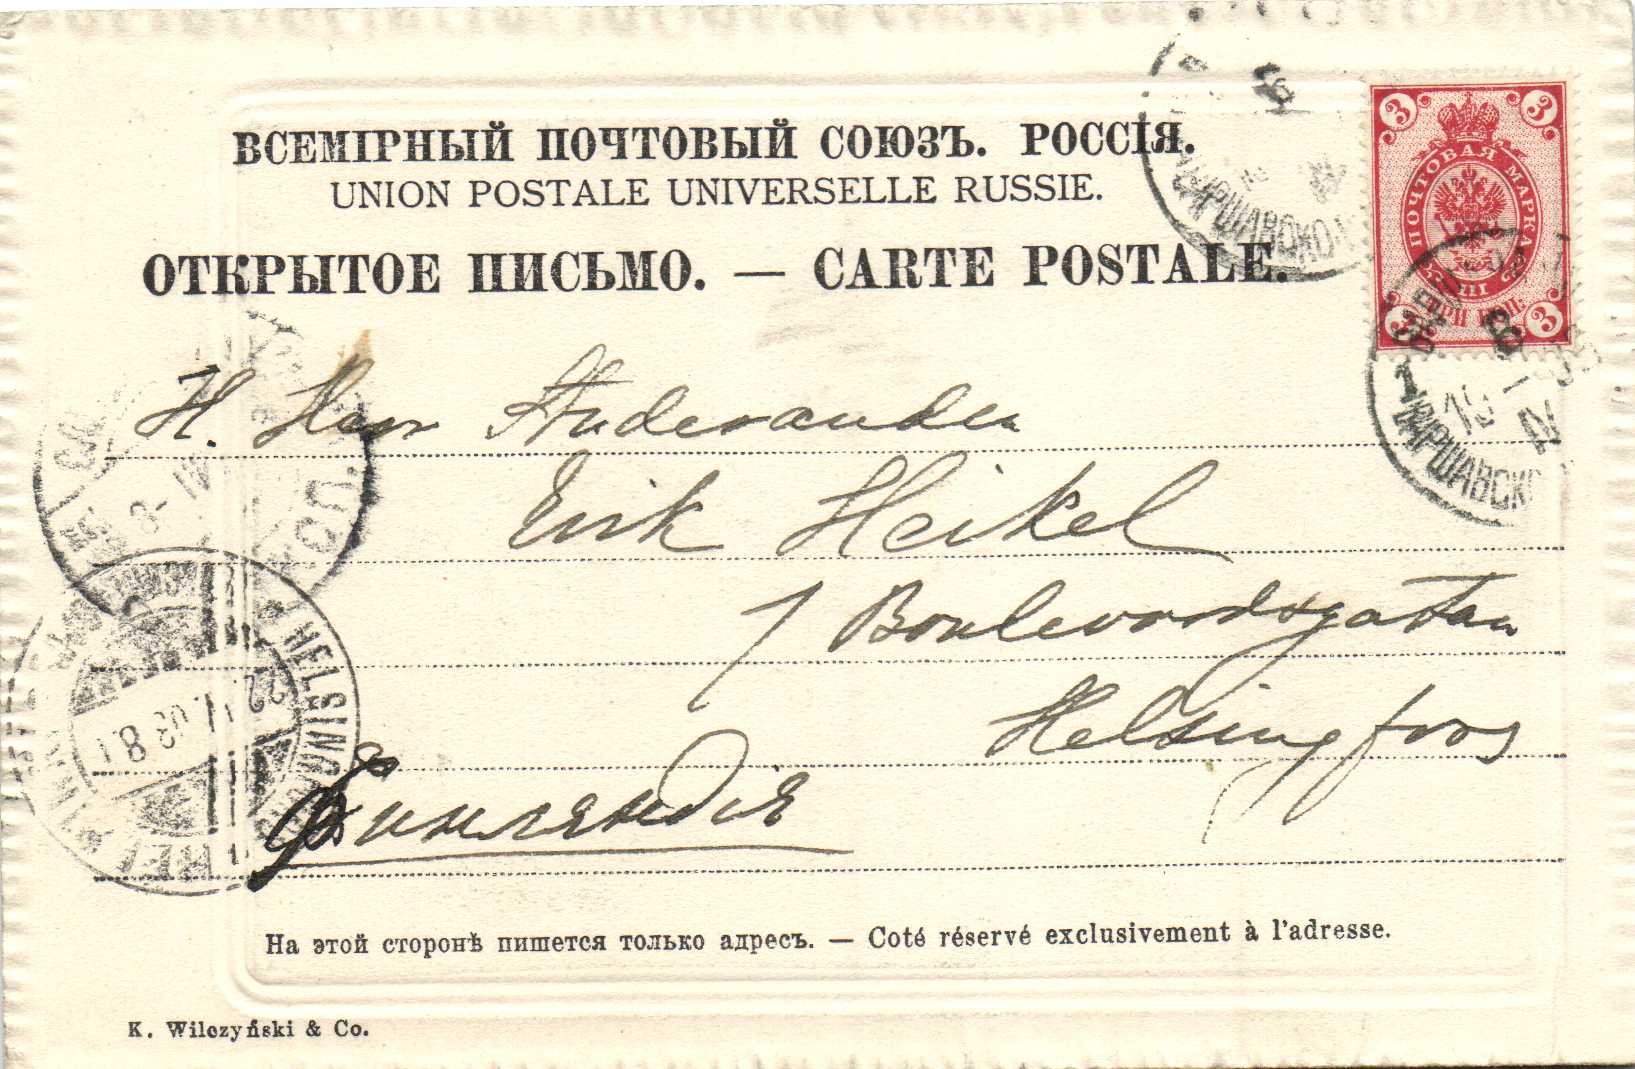 ВСЕМІРНЫЙ ПОЧТОВЫЙ СОЮЗЪ. РОССІЯ.
UNION POSTALE UNIVERSELLE RUSSIE.
ОТКРЫТОЕ ПИСЬМО. — CARTE POSTALE.
3 3
ПОЧТОВАЯ МАРКА
ТРИ КОП.
3 3
H. Herr Studeranden
Erik Heikel
7 Boulevardsgatan
Helsingfors
Финляндія
HELSINGFORS
22. IV. 03. 8
На этой сторонѣ пишется только адресъ. — Coté réservé exclusivement à l'adresse.
K. Wilczyński & Co.